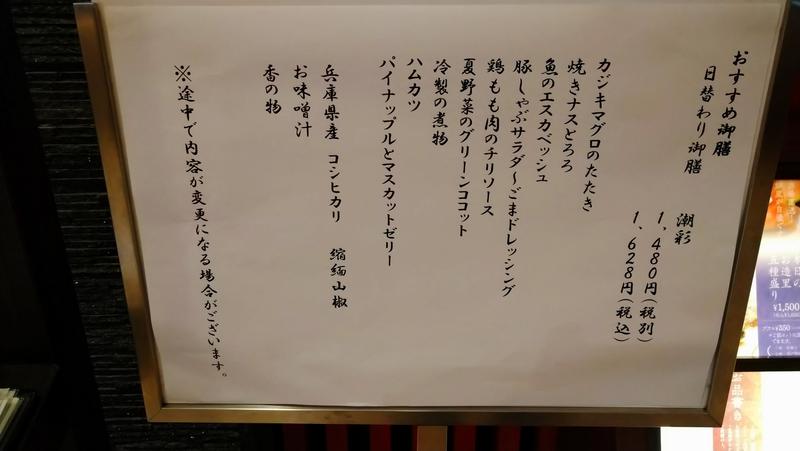 おすすめ御膳
日替わり御膳
潮彩
1,480円(税別)
1,628円(税込)
カジキマグロのたたき
焼きナスとろろ
魚のエスカベッシュ
豚しゃぶサラダ～ごまドレッシング
鶏もも肉のチリソース
夏野菜のグリーンココット
冷製の煮物
ハムカツ
パイナップルとマスカットゼリー
兵庫県産 コシヒカリ 縮緬山椒
お味噌汁
香の物
※途中で内容が変更になる場合がございます。
お造里
五種盛り
¥1,500